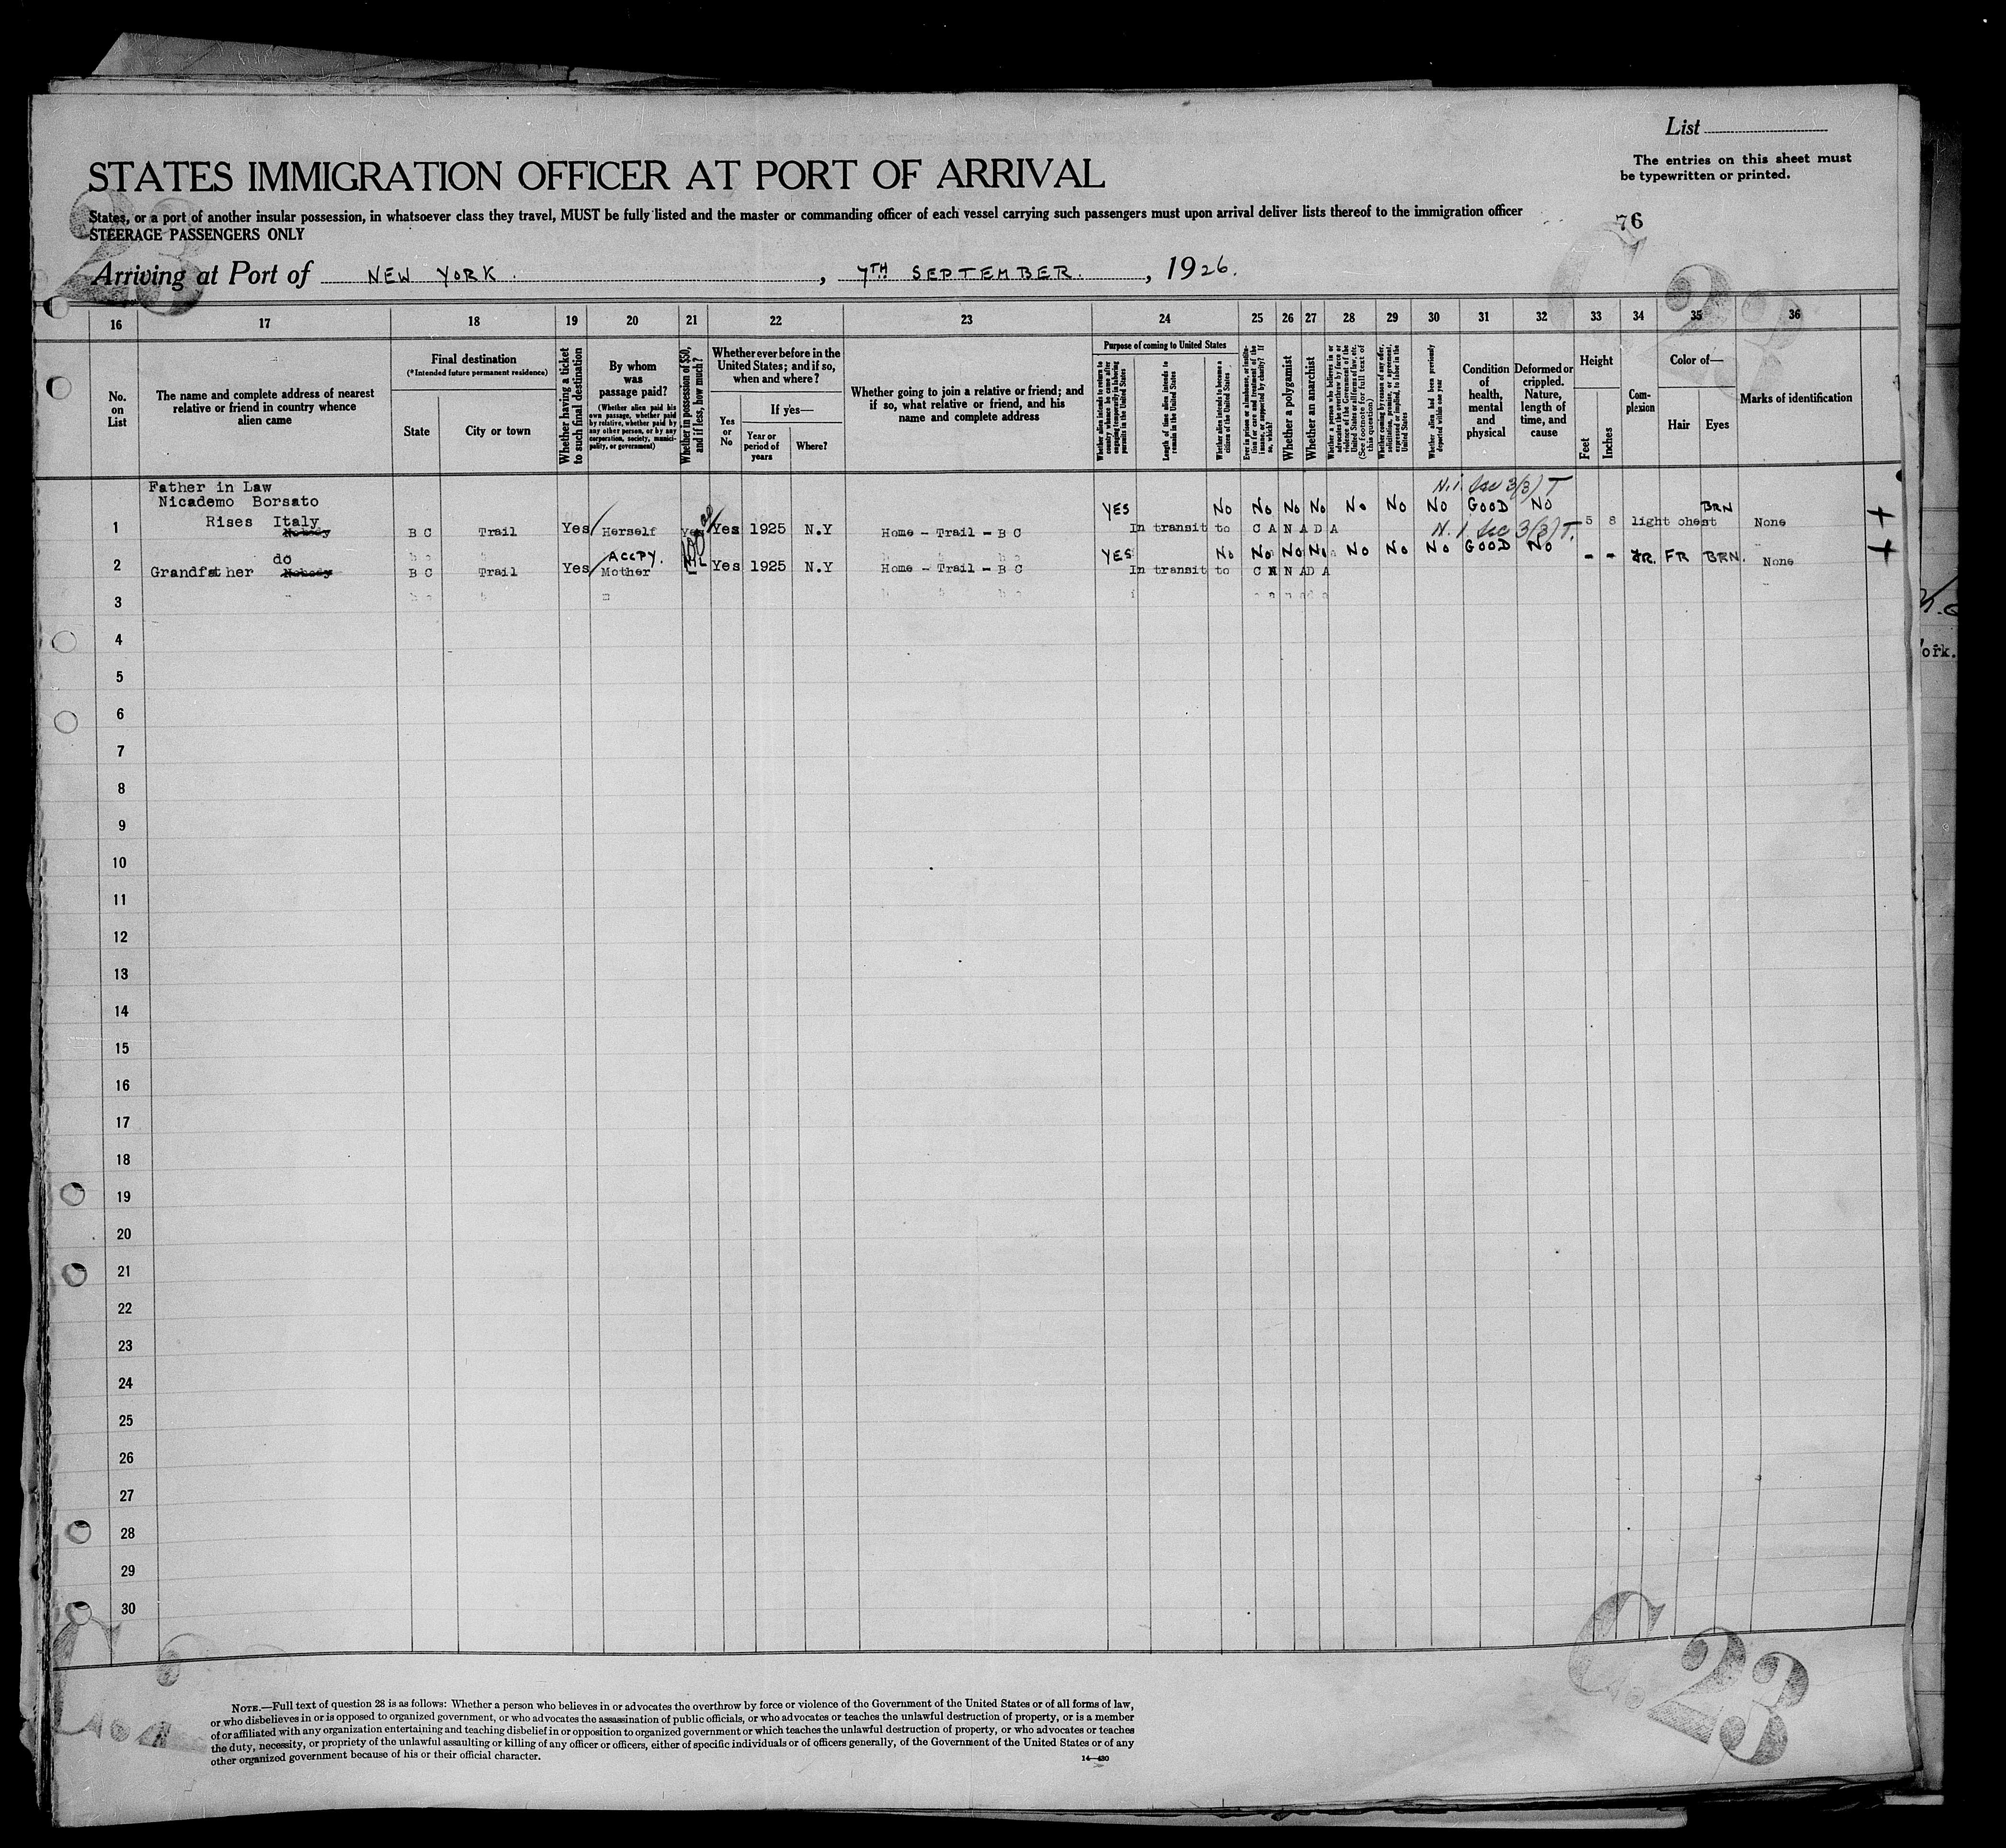 List
The entries on this sheet must
be typewritten or printed.
STATES IMMIGRATION OFFICER AT PORT OF ARRIVAL
States, or a port of another insular possession, in whatsoever class they travel, MUST be fully listed and the master or commanding officer of each vessel carrying such passengers must upon arrival deliver lists thereof to the immigration officer
STEERAGE PASSENGERS ONLY
76
23
Arriving at Port of NEW YORK. , 7TH SEPTEMBER. , 1926.
16 17 18 19 20 21 22 23 24 25 26 27 28 29 30 31 32 33 34 35 36
No.
on
List
The name and complete address of nearest
relative or friend in country whence
alien came
Final destination
(*Intended future permanent residence)
State
City or town
Whether having a ticket
to such final destination
By whom
was
passage paid?
(Whether alien paid his
own passage, whether paid
by relative, whether paid by
any other person, or by any
corporation, society, munici-
pality, or government)
Whether in possession of $50,
and if less, how much?
Whether ever before in the
United States; and if so,
when and where?
Yes
or
No
If yes—
Year or
period of
years
Where?
Whether going to join a relative or friend; and
if so, what relative or friend, and his
name and complete address
Purpose of coming to United States
Whether alien intends to return to
country whence he came after
engaging temporarily in laboring
pursuits in the United States
Length of time alien intends to
remain in the United States
Whether alien intends to become a
citizen of the United States
Ever in prison or almshouse, or institu-
tion for care and treatment of the
insane, or supported by charity? If
so, which?
Whether a polygamist
Whether an anarchist
Whether a person who believes in or
advocates the overthrow by force or
violence of the Government of the
United States or all forms of law, etc.
(See footnote for full text of
this question)
Whether coming by reason of any offer,
solicitation, promise, or agreement,
expressed or implied, to labor in the
United States
Whether alien had been previously
deported within one year
Condition
of
health,
mental
and
physical
Deformed or
crippled.
Nature,
length of
time, and
cause
Height
Feet
Inches
Com-
plexion
Color of—
Hair
Eyes
Marks of identification
Father in Law
Nicademo Borsato
Rises Italy
1 Nobody B C Trail Yes Herself Yes Yes 1925 N.Y Home - Trail - B C YES In transit to CANADA No No No No No No No GOOD No 5 8 light chest BRN None +
N.I. Sec 3(3) T
do
2 Grandfather Nobody B C Trail Yes ACCPY. Mother NIL Yes 1925 N.Y Home - Trail - B C YES In transit to CANADA No No No No No No No GOOD No - - FR. FR BRN. None +
N.I. Sec 3(3) T.
3
4
5
6
7
8
9
10
11
12
13
14
15
16
17
18
19
20
21
22
23
24
25
26
27
28
29
30
ork.
NOTE.—Full text of question 28 is as follows: Whether a person who believes in or advocates the overthrow by force or violence of the Government of the United States or of all forms of law,
or who disbelieves in or is opposed to organized government, or who advocates the assassination of public officials, or who advocates or teaches the unlawful destruction of property, or is a member
of or affiliated with any organization entertaining and teaching disbelief in or opposition to organized government or which teaches the unlawful destruction of property, or who advocates or teaches
the duty, necessity, or propriety of the unlawful assaulting or killing of any officer or officers, either of specific individuals or of officers generally, of the Government of the United States or of any
other organized government because of his or their official character.
14—430
23